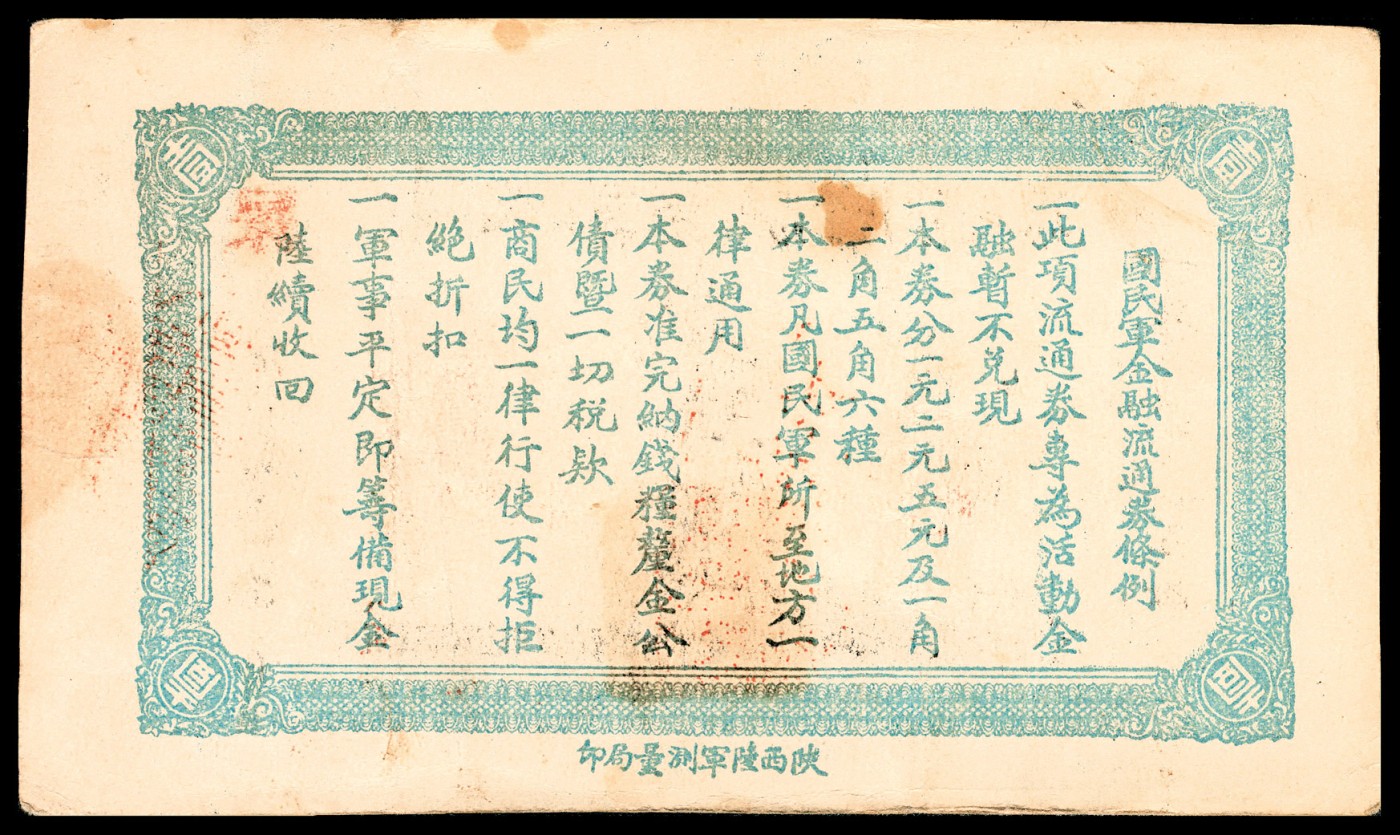 國民軍金融流通券條例
一此項流通券專為活動金
融暫不兌現
一本券分一元二元五元及一角
二角五角六種
一本券凡國民軍所至地方一
律通用
一本券准完納錢糧釐金公
債暨一切税欵
一商民均一律行使不得拒
絶折扣
一軍事平定即筹備現金
陸續收回
陝西陸軍測量局印
壹
壹
壹
壹